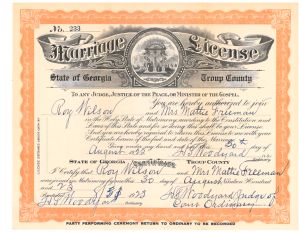 No. 233
Marriage License
State of Georgia Troup County
TO ANY JUDGE, JUSTICE OF THE PEACE, OR MINISTER OF THE GOSPEL
You are hereby authorized to join
Roy Wilson and Mrs Mattie Freeman
in the Holy State of Matrimony according to the Constitution and
Laws of this State and for so doing this shall be your License
And you are hereby required to return this License to me with your
Certificate
Given under my hand and seal this 30th day of
August
STATE OF GEORGIA CERTIFICATE TROUP COUNTY
I Certify that Roy Wilson and Mrs Mattie Freeman
were joined in Matrimony this 30 day of August Nineteen Hundred
and 23
PARTY PERFORMING CEREMONY RETURN TO ORDINARY TO BE RECORDED